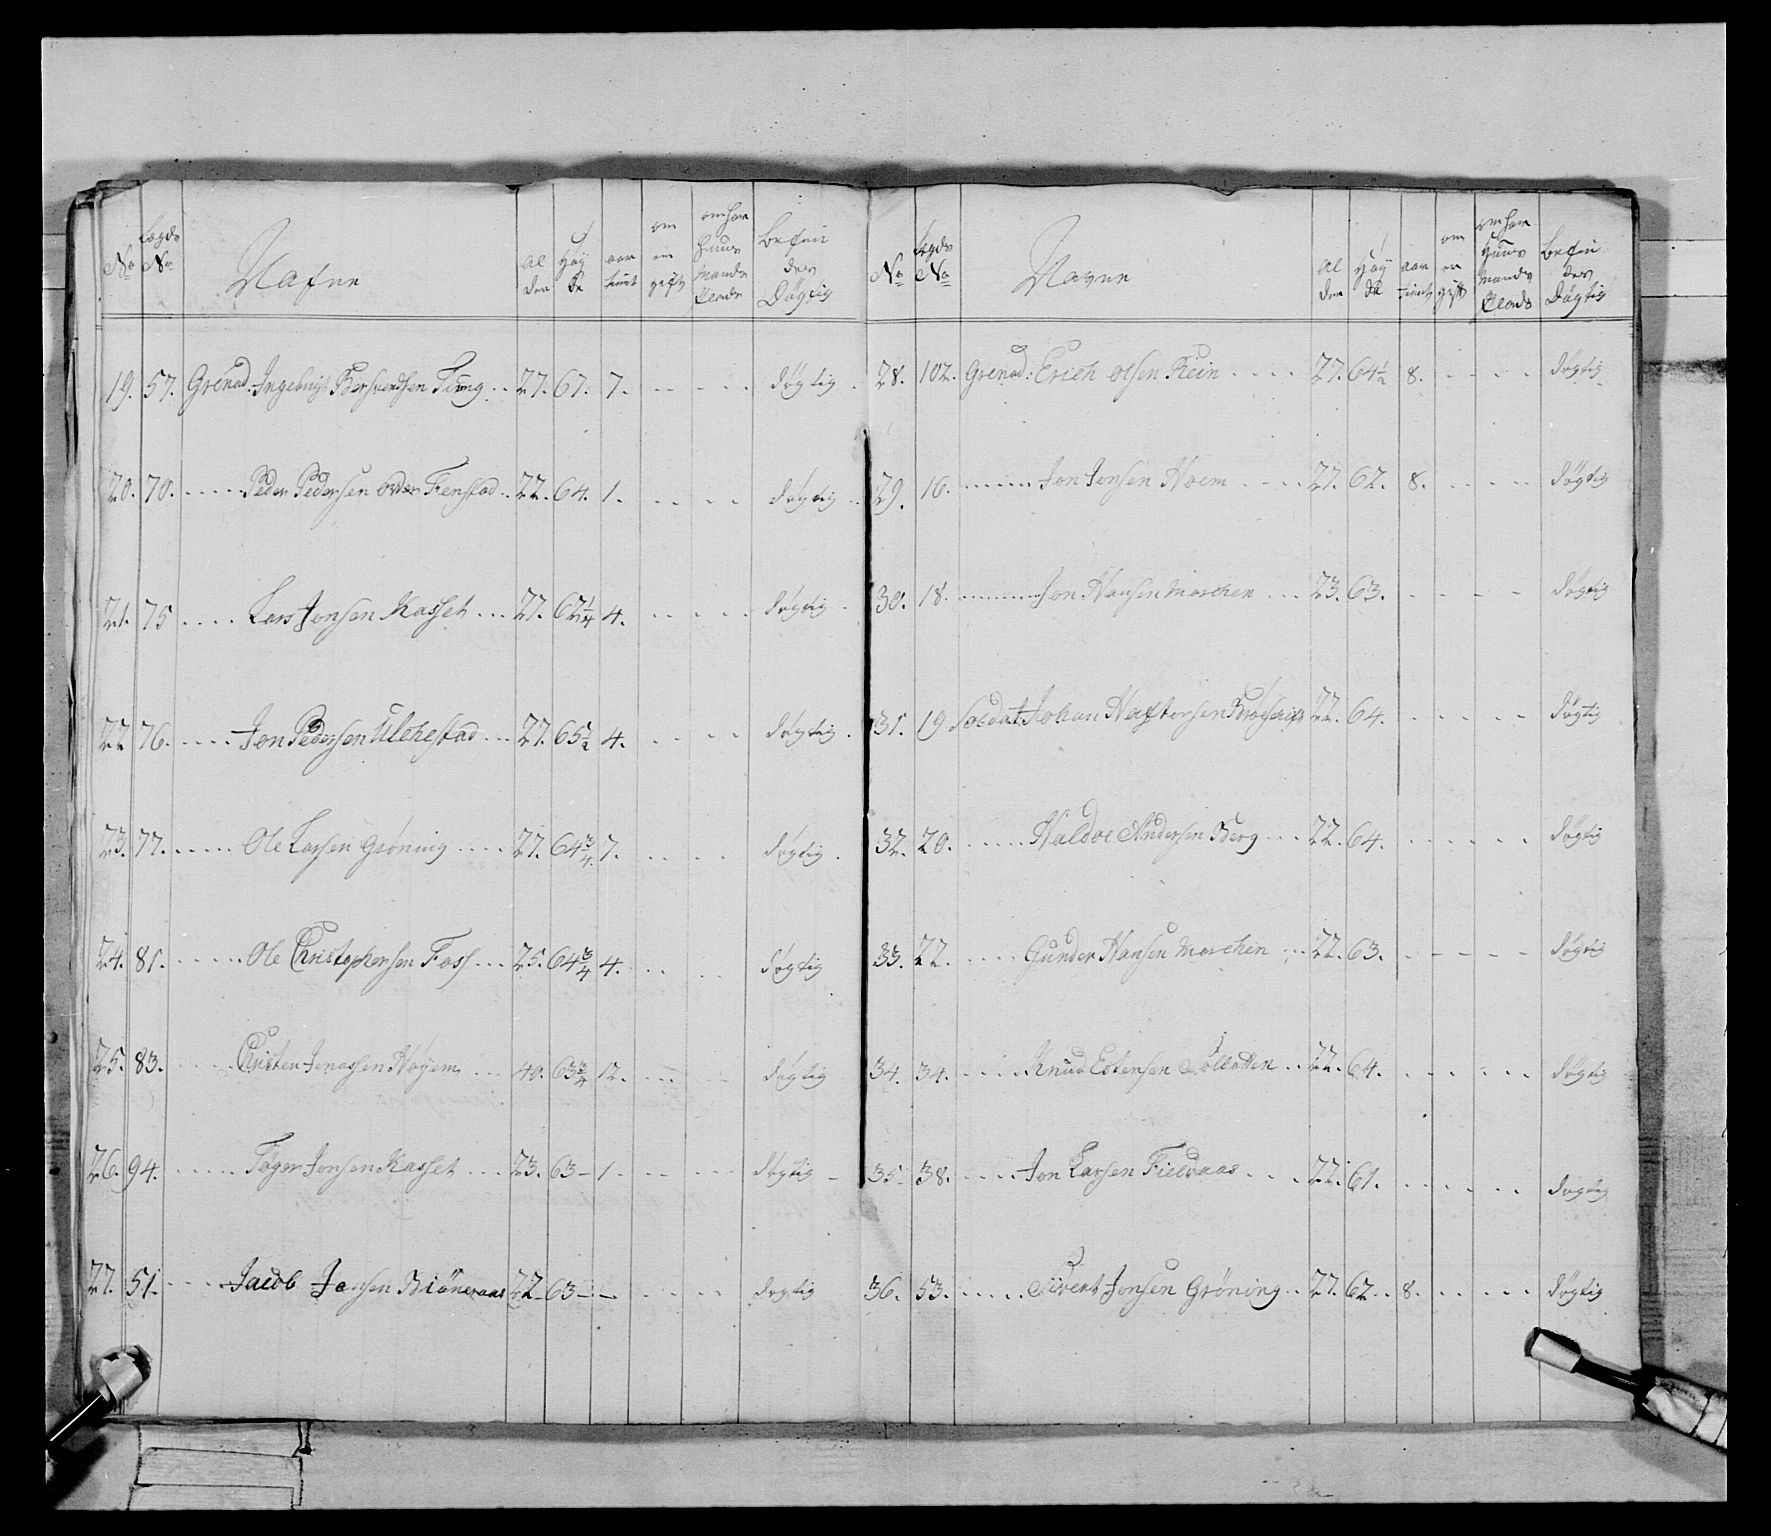 No Legds No Nafne Al der Høy de aar tient om er gift om har Huus Mands Plads befin des Døgtig
19. 57. Grenad: Ingebrigt Bersvendsen Tung .. 27. 67. 7. døgtig
20. 70. Peder Pedersen Fenstad .. 22. 64. 1. døgtig
21. 75 Lars Jonsen Kasset ... 27. 62 1/4 4. døgtig
22 76. Jon Pedersen Ulchestad ... 27. 65 1/2 4. døgtig
23. 77. Ole Larsen Grøning .... 27. 64 3/4 7. døgtig
24. 81. Ole Christophersen Foss ... 25. 64 3/4 4. døgtig
25. 83. Christen Jonassen Høyem ... 40. 63 3/4 12. døgtig
26. 94. Tøger Jonsen Kasset ... 23. 63 - 1. døgtig
27. 51. Jacob Jonsen 22 - 63 - - døgtig
No Legds No Navne Al der Høy de aar tient om er gift om har Huus Mands Plads befin des Døgtig
28. 102. Grenad: Erich Olsen Rein .... 27. 64 1/2 8. døgtig
29. 16. Jon Jonsen Hoem .... 27. 62. 8. døgtig
30. 18. Jon Hansen Marchen ... 23. 63. døgtig
31. 19 Soldat Johan 22. 64. døgtig
32. 20. Haldoe Andersen Berg ... 22. 64. døgtig
33. 22. Gunder Hansen Marchen ... 22. 63. døgtig
34. 34. Knud Estensen .. 22. 64. døgtig
35 - 38. Jon Larsen Fieldaas .... 22. 61. døgtig
36. 53. Sivert Jonsen Grøning .. 27. 62 .. 8. døgtig